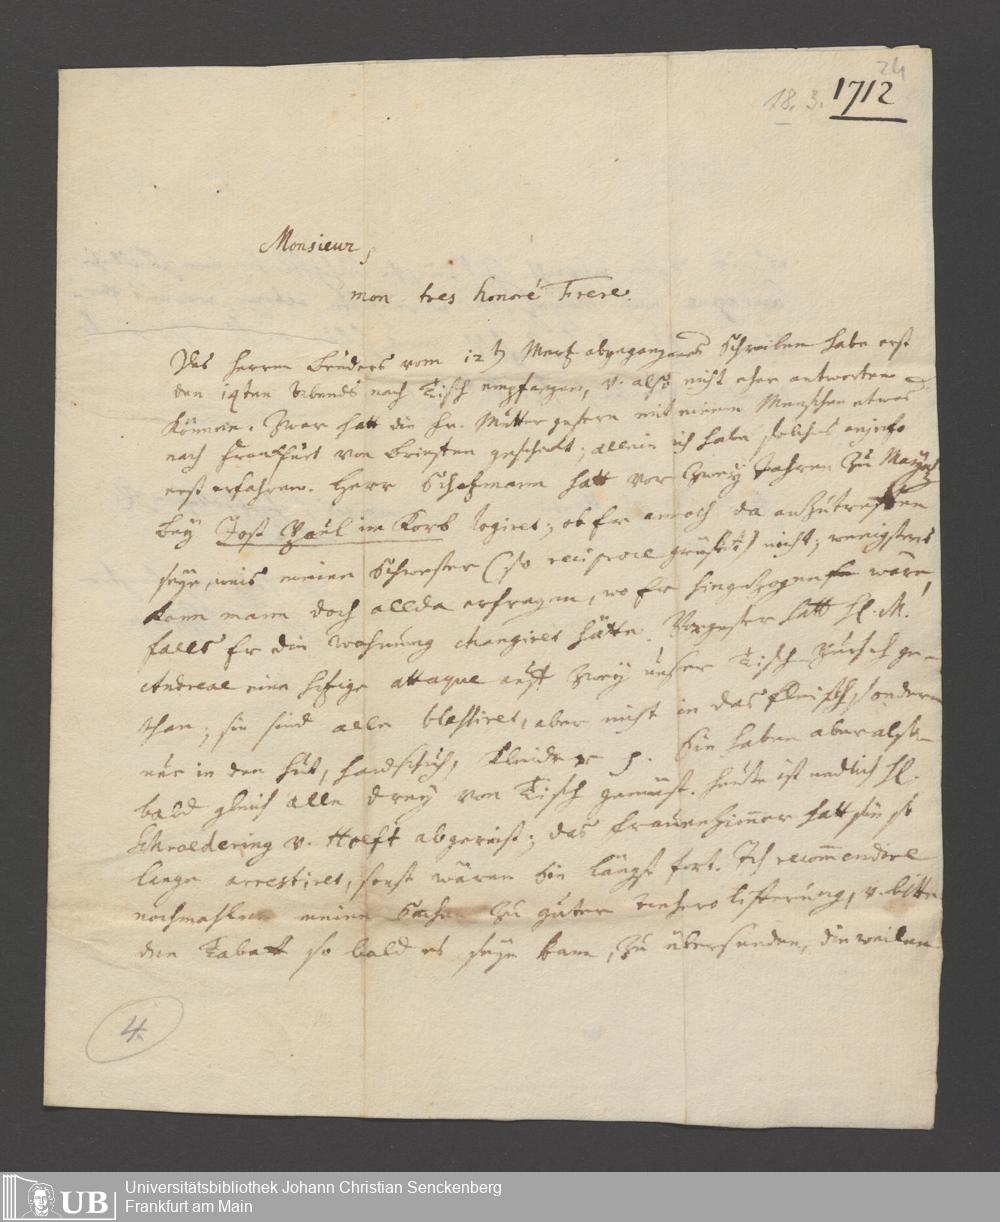 24
18. 3. 1712
Monsieur,
mon tres honoré Frere.
Des Herren Bruders vom 12 t Mertz abgegangenes Schreiben habe erst
den 14ten Abends nach Tisch empfangen, v. also nicht eher antworten
können. Zwar hatt die Fr. Mutter gestern mit einem Menschen etwas
nach Franckfurt von Briefen geschickt; allein ich habe solches anjetzo
erst erfahren. Herr Schazmann hatt vor zwey Jahren zu Maynz
bey Jost Paul im Korb logiret; ob Er annoch da anzutreffen
seye, weis meine Schwester (so reciproce grüsset) nicht; wenigstens
kann mann doch allda erfragen, wo Er hingezogen wäre,
falls Er die Wohnung changiret hätte. Vorgester hatt H. M.
Andreae eine hitzige attaque auf zwey unser Tisch Pursch ge-
than; sie sind alle blessiret, aber nicht in das Fleisch, sondern
nur in den Hut, Handschuh, Kleider Sie haben aber also-
bald gleich alle drey von Tisch gemust. Heute ist endlich H.
Schroedering v. Hoeft abgereist; das Frauenzimmer hatt sie so
lange arrestiret, sonst wären Sie längst fort. Ich recommendire
nochmahlen meine Sache zu guter Lifferung, v. bitte
den Taback so bald es seyn kann, zu übersenden, dieweilen
4.
UB
Universitätsbibliothek Johann Christian Senckenberg
Frankfurt am Main